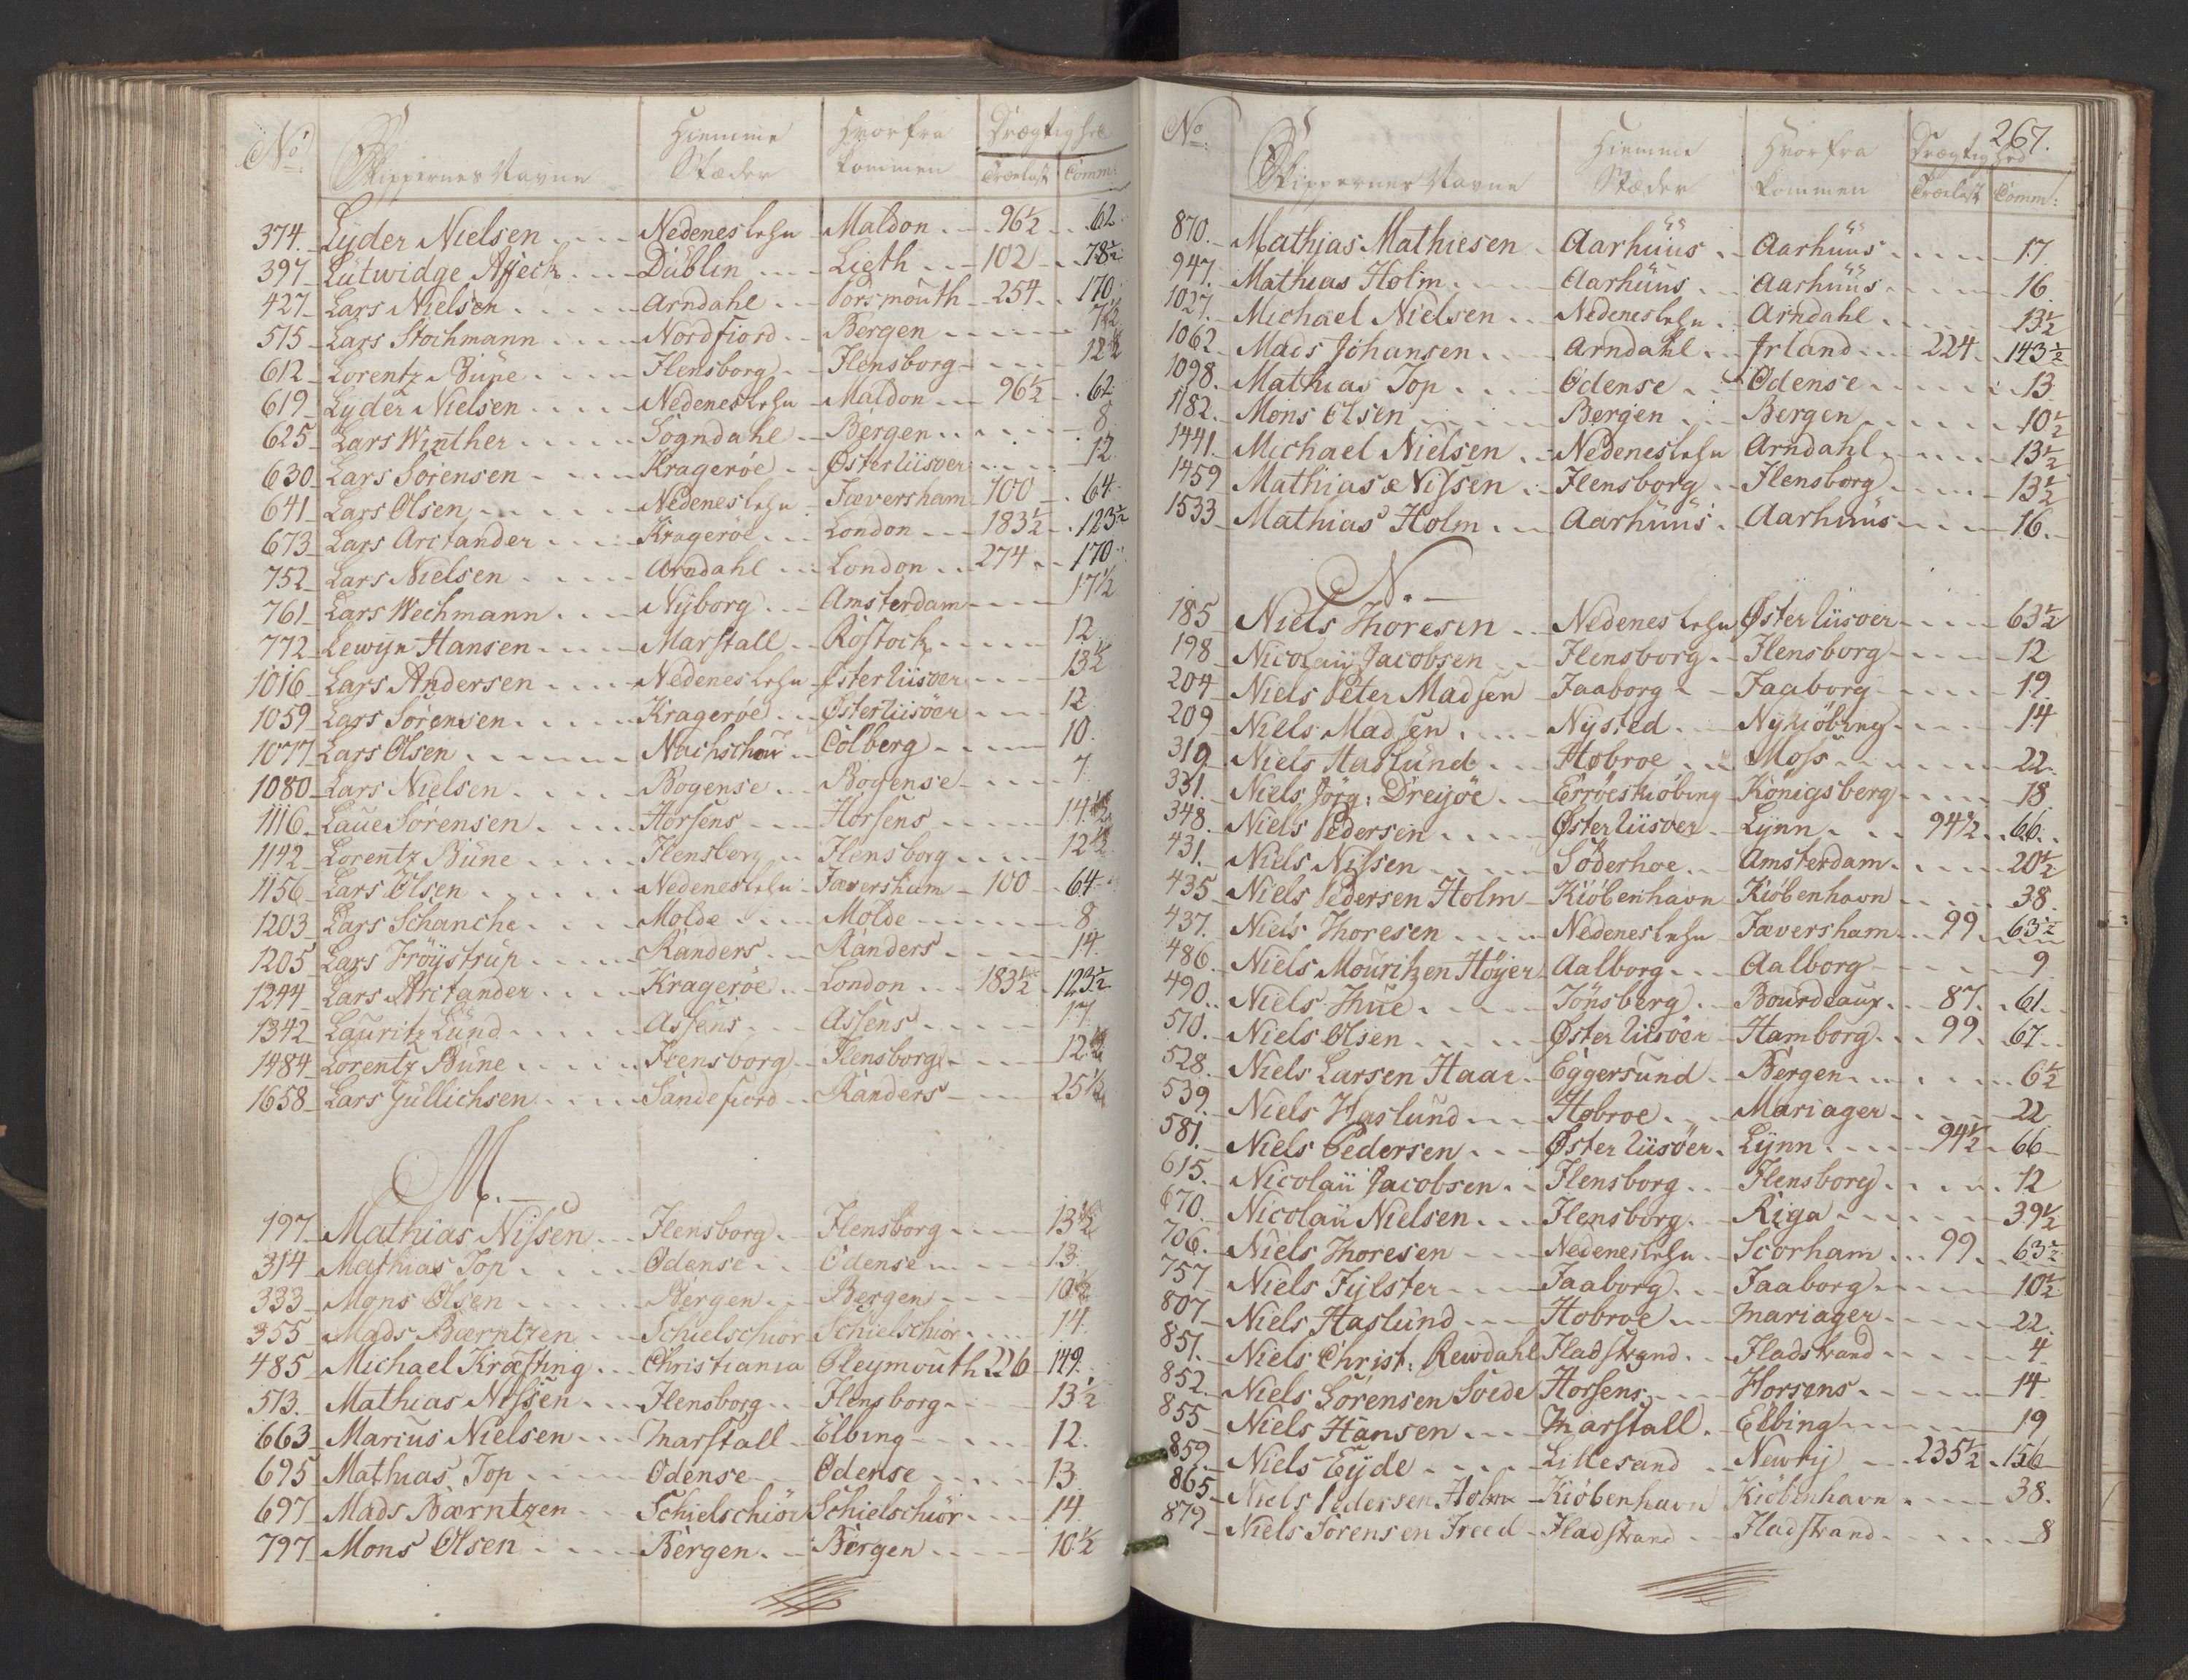 No. Skippernes Navne Hiemme Stæder Hvorfra kommen Drægtighed Trælast Comm:
374. Lyder Nielsen Nedeneslehn Maldon 96½ 62
397 Lutwidge Affeck Dublin Lieth 102 78½
427 Lars Nielsen Arndahl Porsmouth 254 170
515 Lars Stochmann Nordfiord Bergen 7½
612 Lorentz Büne Flensborg Flensborg 12½
619 Lyder Nielsen Nedeneslehn Maldon 96½ 62
625 Lars Winther Sogndahl Bergen 8
630 Lars Sörensen Kragerøe Østerliisoer 12
641 Lars Olsen Nedeneslehn Fæversham 100 64
673 Lars Arctander Kragerøe London 183½ 123½
752 Lars Nielsen Arndahl London 274 170
761 Lars Wechmann Nyborg Amsterdam 17½
772 Lewijn Hansen Marstall Rostock 12
1016 Lars Andersen Nedeneslehn Østerliisoer 13½
1059 Lars Sörensen Kragerøe Østerliisöer 12
1077 Lars Olsen Nachschou Colberg 10.
1080 Lars Nielsen Bogense Bogense 7
1116 Laue Sörensen Horsens Horsens 14½
1142 Lorentz Büne Flensberg Flensborg 12½
1156 Lars Olsen Nedeneslehn Fæversham 100 64
1203 Lars Schanche Molde Molde 8
1205 Lars Fröystrup Randers Randers 14
1244 Lars Arctander Kragerøe London 183½ 123½
1342 Lauritz Lund Assens Assens 17
1484 Lorentz Büne Flensborg Flensborg 12½
1658 Lars Jullichsen Sandefiord Randers 25½
M.
197 Mathias Nissen Flensborg Flensborg 13½
314 Mathias Top Odense Odense 13
333 Mons Olsen Bergen Bergen 10½
355 Mads Bærntzen Schielschiör Schielschiör 14
485 Michael Kræfting Christiania Pleymouth 226 149.
513. Mathias Nissen Flensborg Flensborg 13½
663 Marius Nielsen Marstall Elbing 12.
695 Mathias Top Odense Odense 13
697 Mads Bærntzen Schielschiör Schielschiör 14
797 Mons Olsen Bergen Bergen 10½
267.
No. Skippernes Navne Hiemme Stæder Hvorfra kommen Drægtighed Trælast Comm:
870. Mathias Mathiesen Aarhuus Aarhuus 17
947. Mathias Holm Aarhuus Aarhuus 16
1027. Michael Nielsen Nedeneslehn Arndahl 13½
1062 Mads Johansen Arndahl Irland 224 143½
1098. Mathias Top Odense Odense 13
1182. Mons Olsen Bergen Bergen 10½
1441. Michael Nielsen Nedeneslehn Arndahl 13½
1459 Mathias Nissen Flensborg Flensborg 13½
1533 Mathias Holm Aarhuus Aarhuus 16.
N.
185 Niels Thoresen Nedeneslehn Østerliisoer 63½
198 Nicolaii Jacobsen Flensborg Flensborg 12
204 Niels Peter Madsen Faaborg Faaborg 19
209 Niels Madsen Nysted Nykiöbing 14
319 Niels Haslund Hobroe Moss 22
331. Niels Jörg: Dreijöe Erröeskiöbing Königsberg 18
348. Niels Pedersen Østerliisoer Lynn 94½ 66.
431. Niels Nissen Söderhoe Amsterdam 20½
435 Niels Pedersen Holm Kiöbenhavn Kiöbenhavn 38
437. Niels Thoresen Nedeneslehn Fæversham 99 63½
486 Niels Mouritzen Höyer Aalborg Aalborg 9
490. Niels Thue Tönsberg Bourdeaux 87 61
510. Niels Olsen Østerliisöer Hamborg 99 67
528. Niels Larsen Haar Eggersund Bergen 6½
539. Niels Haslund Hobroe Mariager 22
581. Niels Pedersen Østerliisöer Lynn 94½ 66
615. Nicolaii Jacobsen Flensborg Flensborg 12
670. Nicolaii Nielsen Flensborg Riga 39½
706. Niels Thoresen Nedeneslehn Scorham 99 63½
757 Niels Fylster Faaborg Faaborg 10½
807 Niels Haslund Hobroe Mariager 22
851. Niels Christ: Rewdahl Fladstrand Fladstrand 4
852. Niels Sörensen Soede Horsens Horsens 14
855 Niels Hansen Marstall Elbing 19
859. Niels Eyde Lillesand Newry 235½ 156
865 Niels Pedersen Holm Kiöbenhavn Kiöbenhavn 38.
879 Niels Sörensen Freed Fladstrand Fladstrand 8